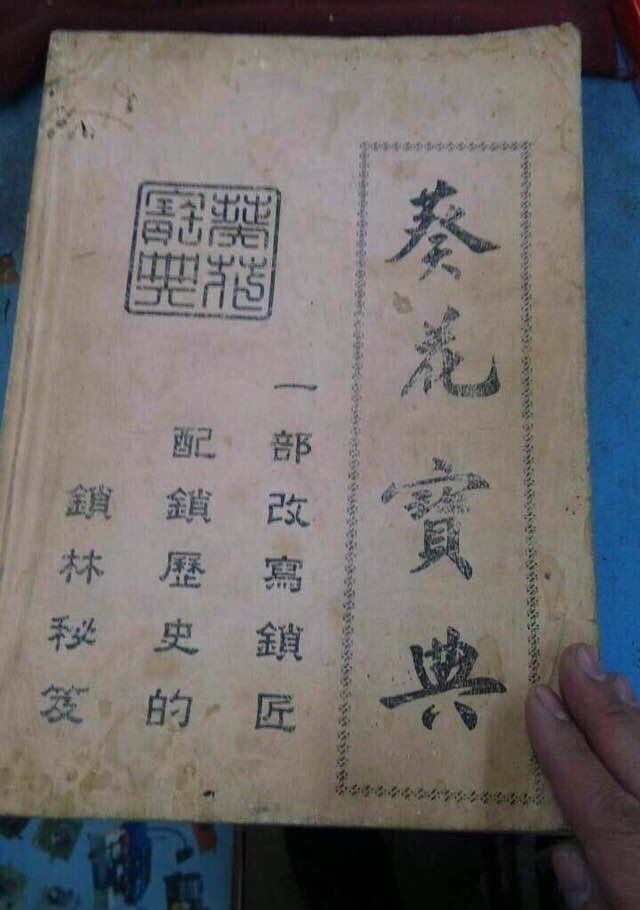 葵花寶典
葵花
寶典
一部改寫鎖匠
配鎖歷史的
鎖林秘笈